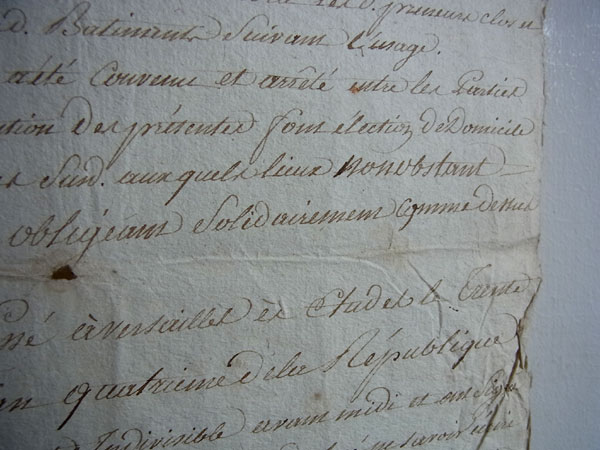 preneurs clore
d. Batiments Suivant l'usage.
a été Convenu et arrêté entre les Parties
ution des présentes font élection de Domicile
Susd. aux quels lieux nonobstant
obligeant Solidairement comme dessus
à versailles ès Etudes le Trente
an quatrieme de la République
Indivisible avant midi et ont signé